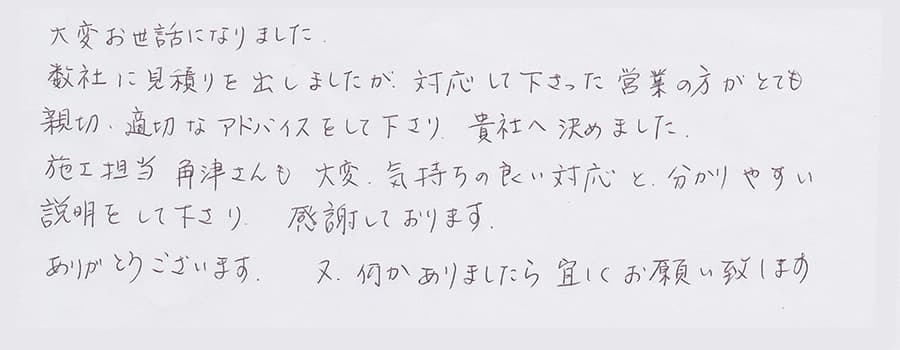 大変お世話になりました.
数社に見積りを出しましたが、対応して下さった営業の方がとても
親切、適切なアドバイスをして下さり、貴社へ決めました.
施工担当 角津さんも 大変、気持ちの良い対応と、分かりやすい
説明をして下さり、 感謝しております.
ありがとうございます. 又、何かありましたら宜しくお願い致します